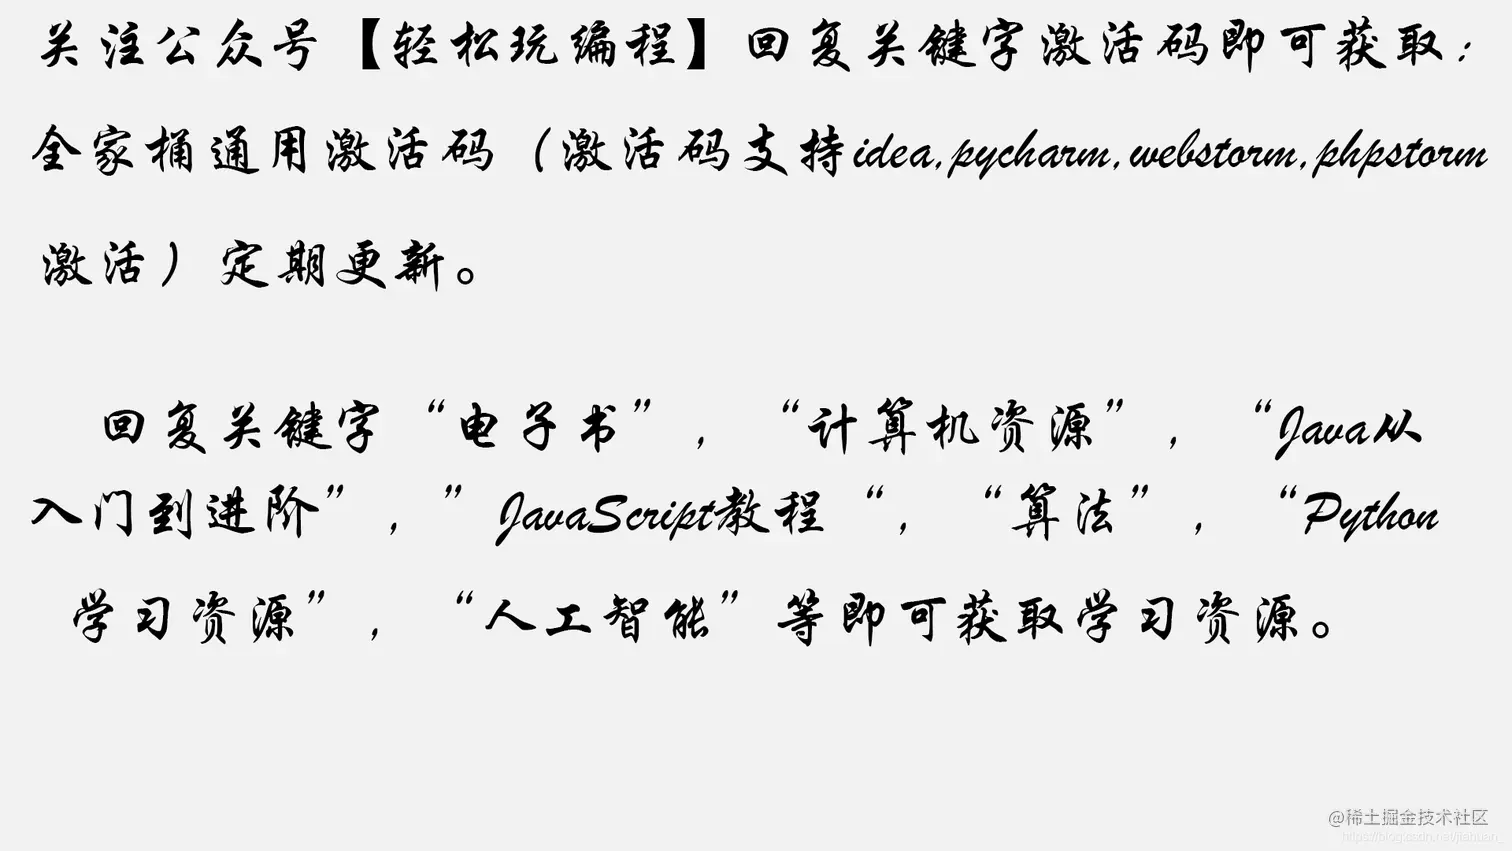 关注公众号【轻松玩编程】回复关键字激活码即可获取：
全家桶通用激活码（激活码支持idea,pycharm,webstorm,phpstorm
激活）定期更新。
回复关键字“电子书”，“计算机资源”，“Java从
入门到进阶”，”JavaScript教程“，“算法”，“Python
学习资源”，“人工智能”等即可获取学习资源。
@稀土掘金技术社区
https://blog.csdn.net/jiahuan_